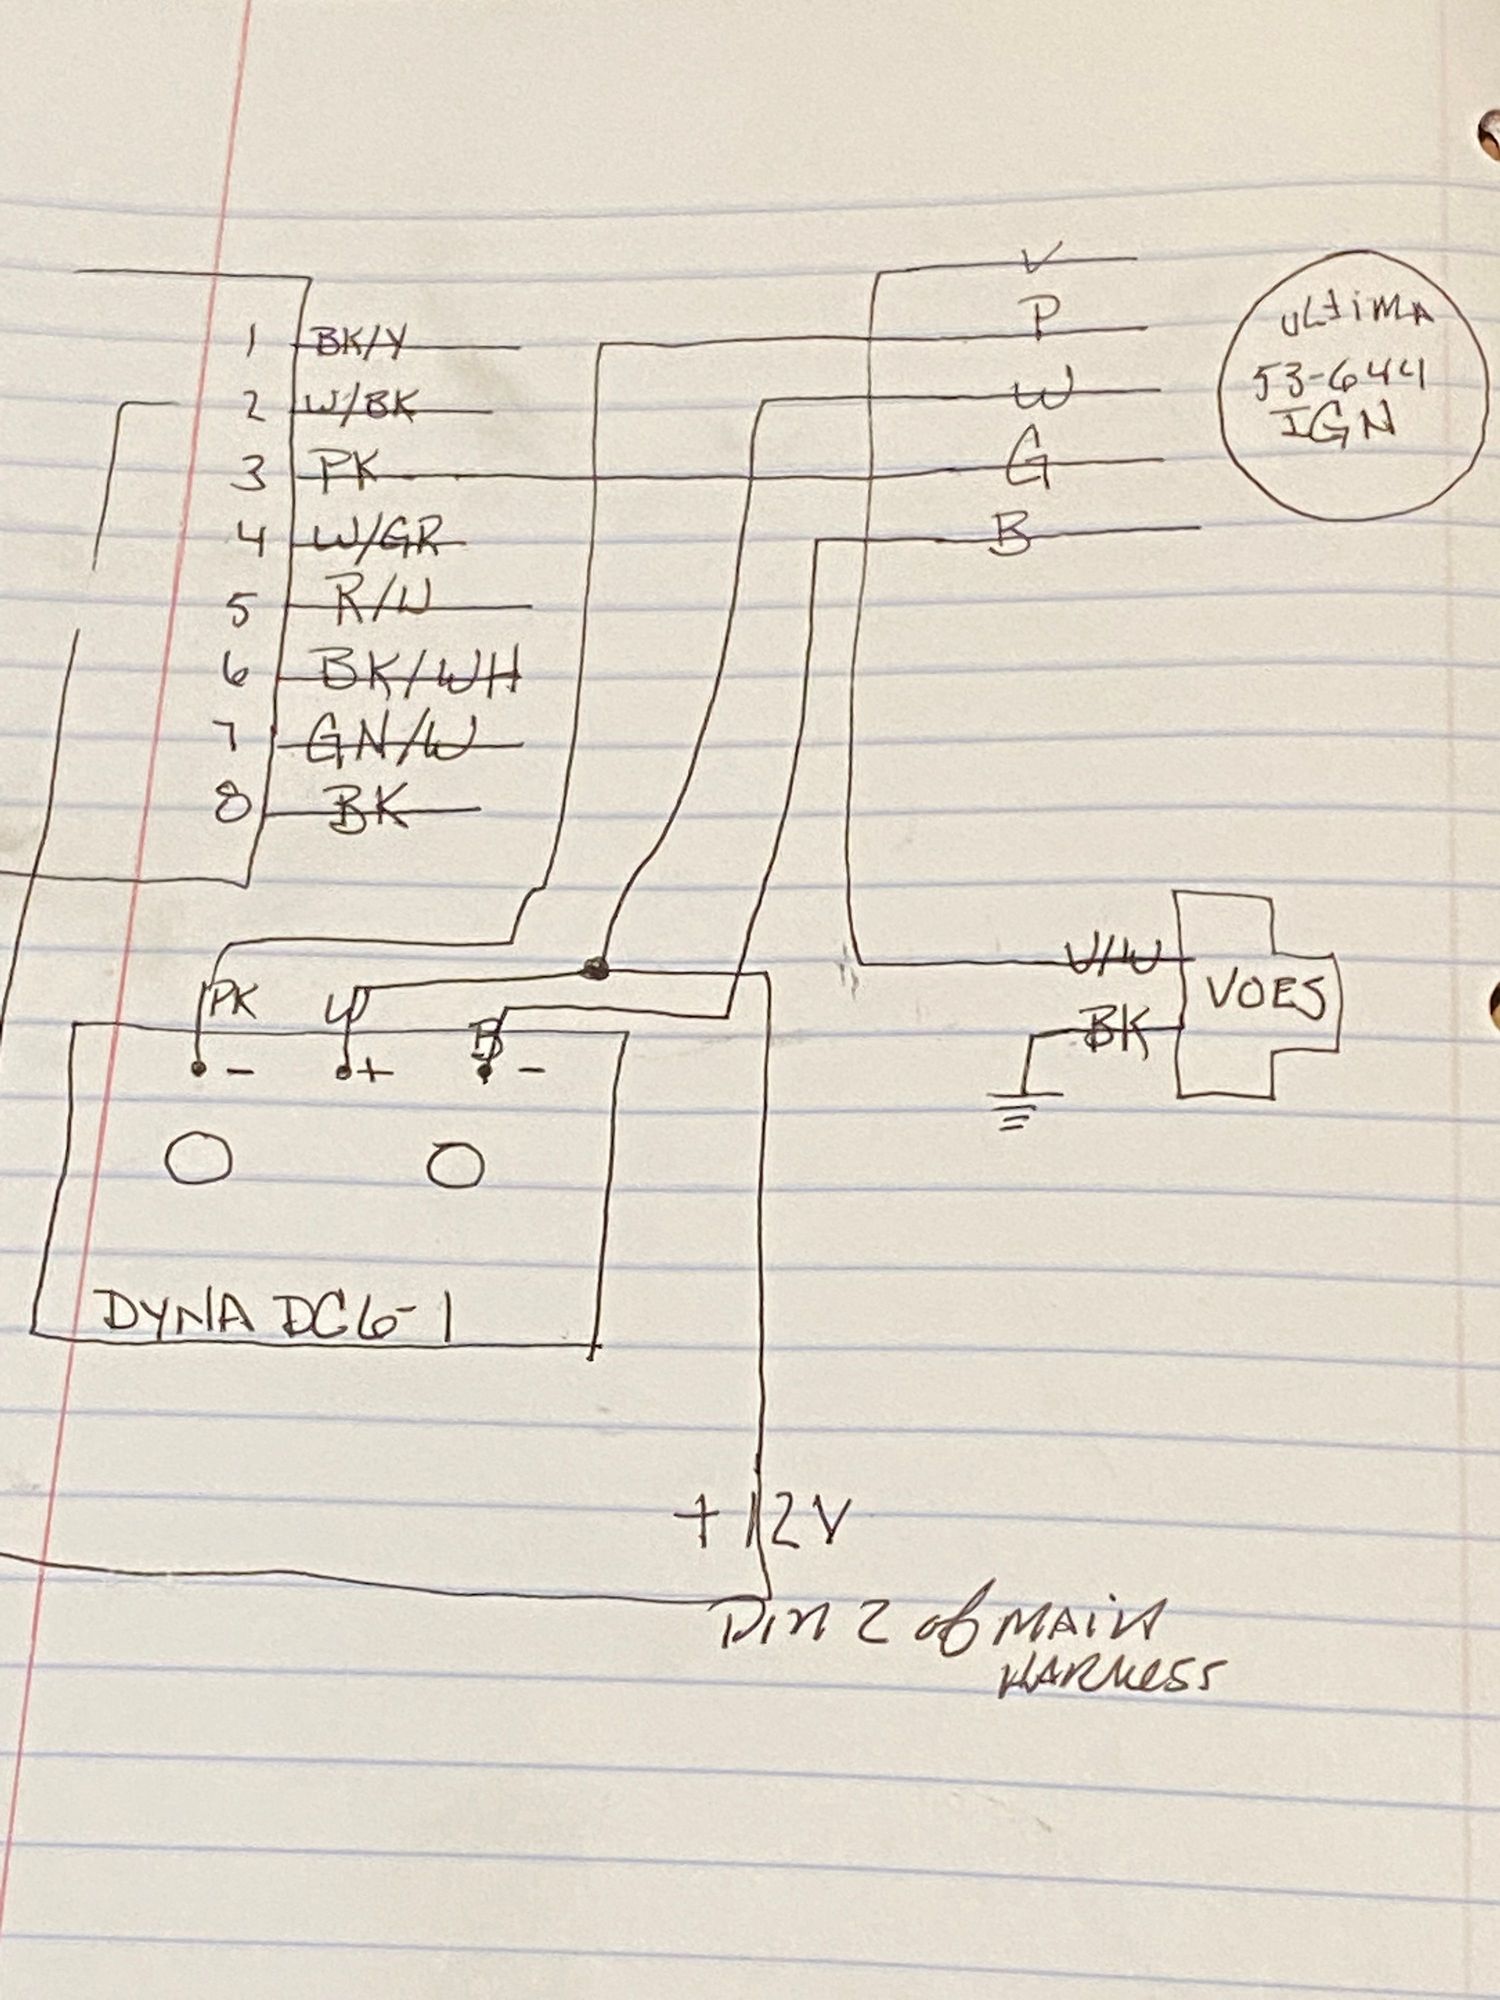 V
P
W
G
B
ULTIMA
53-644
IGN
1 BK/Y
2 W/BK
3 PK
4 W/GR
5 R/W
6 BK/WH
7 GN/W
8 BK
V/W
BK
VOES
PK W B
- + -
DYNA DC6-1
+12V
Pin 2 of MAIN
HARNESS